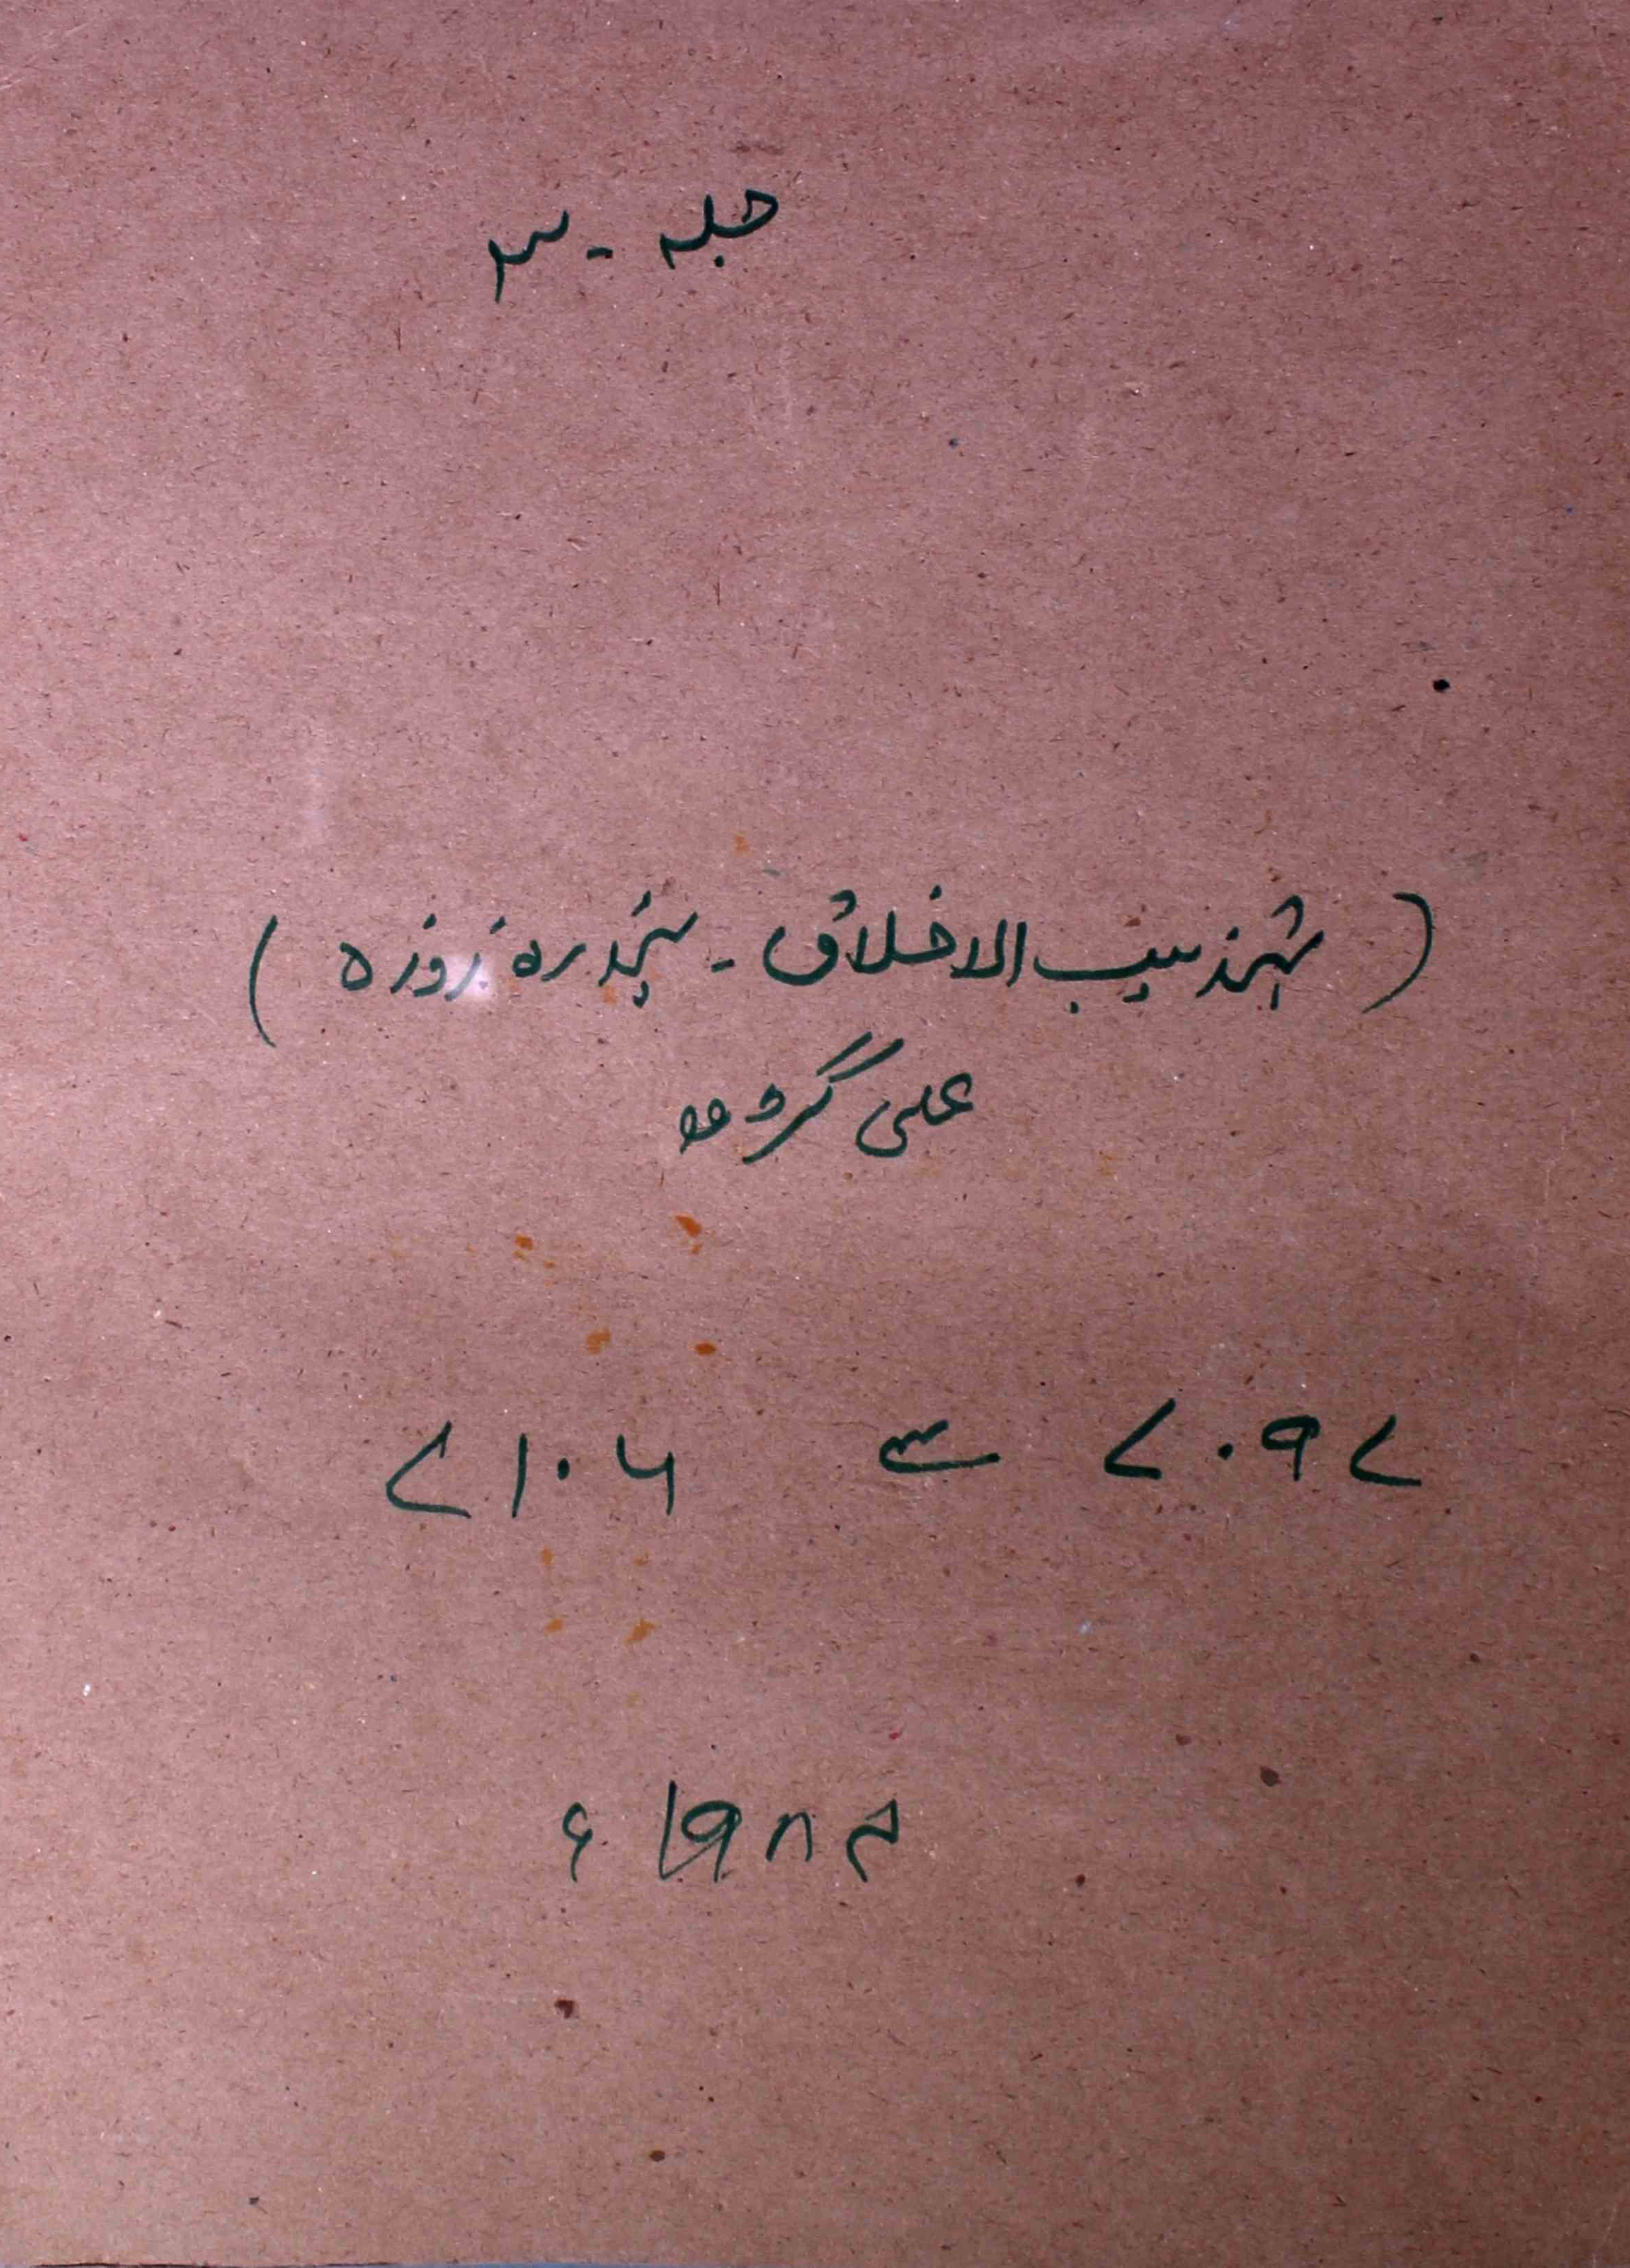 جلد - ۳
(تہذیب الاخلاق - پندرہ روزہ)
علی گڑھ
۷۰۹۷ سے ۷۱۰۶
۱۹۸۴ء